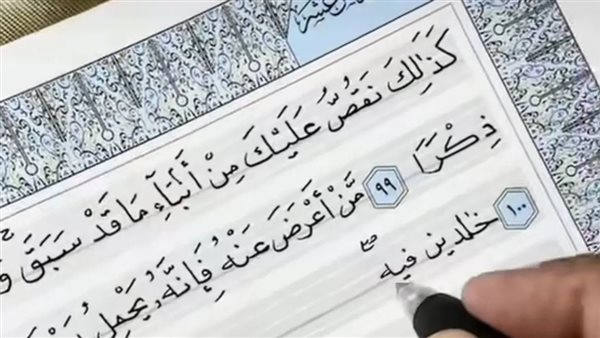 عشر
كَذَٰلِكَ نَقُصُّ عَلَيْكَ مِنْ أَنۢبَآءِ مَا قَدْ سَبَقَ
ذِكْرًا ٩٩ مَّنْ أَعْرَضَ عَنْهُ فَإِنَّهُۥ يَحْمِلُ
١٠٠ خلدين فيه